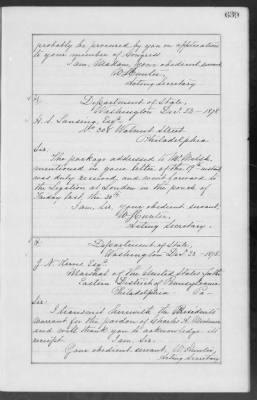 639
probably be procured by you on application
to your member of Congress.
I am, Madam, your obedient servant
W. Hunter,
Acting Secretary
Department of State,
Washington Dec. 23 - 1878.
H. S. Lansing, Esq.
No 308 Walnut Street
Philadelphia
Sir:
The package addressed to Mr. Welsh,
mentioned in your letter of the 19th instant
was duly received, and went forward to
the Legation at London in the pouch of
Friday last, the 20th.
I am, Sir, your obedient servant,
W. Hunter,
Acting Secretary.
Department of State,
Washington Dec. 23 - 1878.
J. N. Kerns Esq.
Marshal of the United States for the
Eastern District of Pennsylvania
Philadelphia Pa -
Sir:
I transmit herewith the President's
warrant for the pardon of Charles A.
and will thank you to acknowledge its
receipt. I am, Sir,
Your obedient servant, W. Hunter,
Acting Secretary